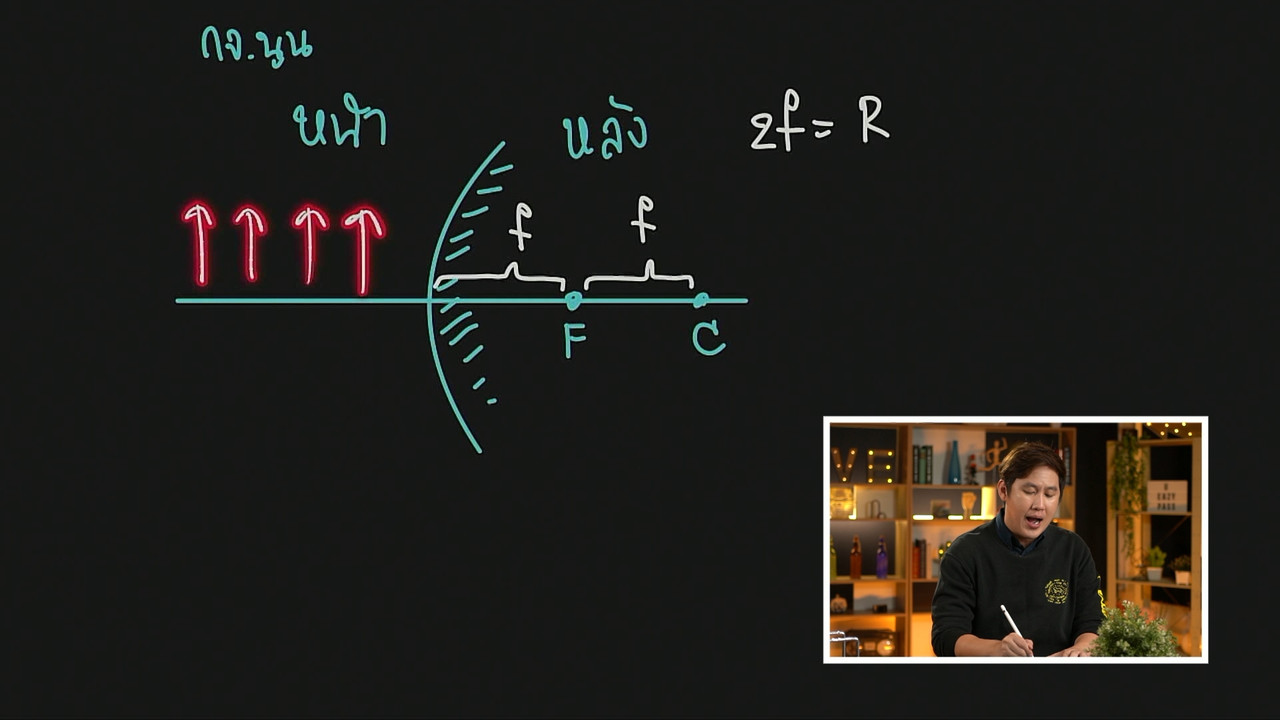 กจ.นูน
หน้า
หลัง
2f = R
f
f
F
C
VE
EAZY
PASS